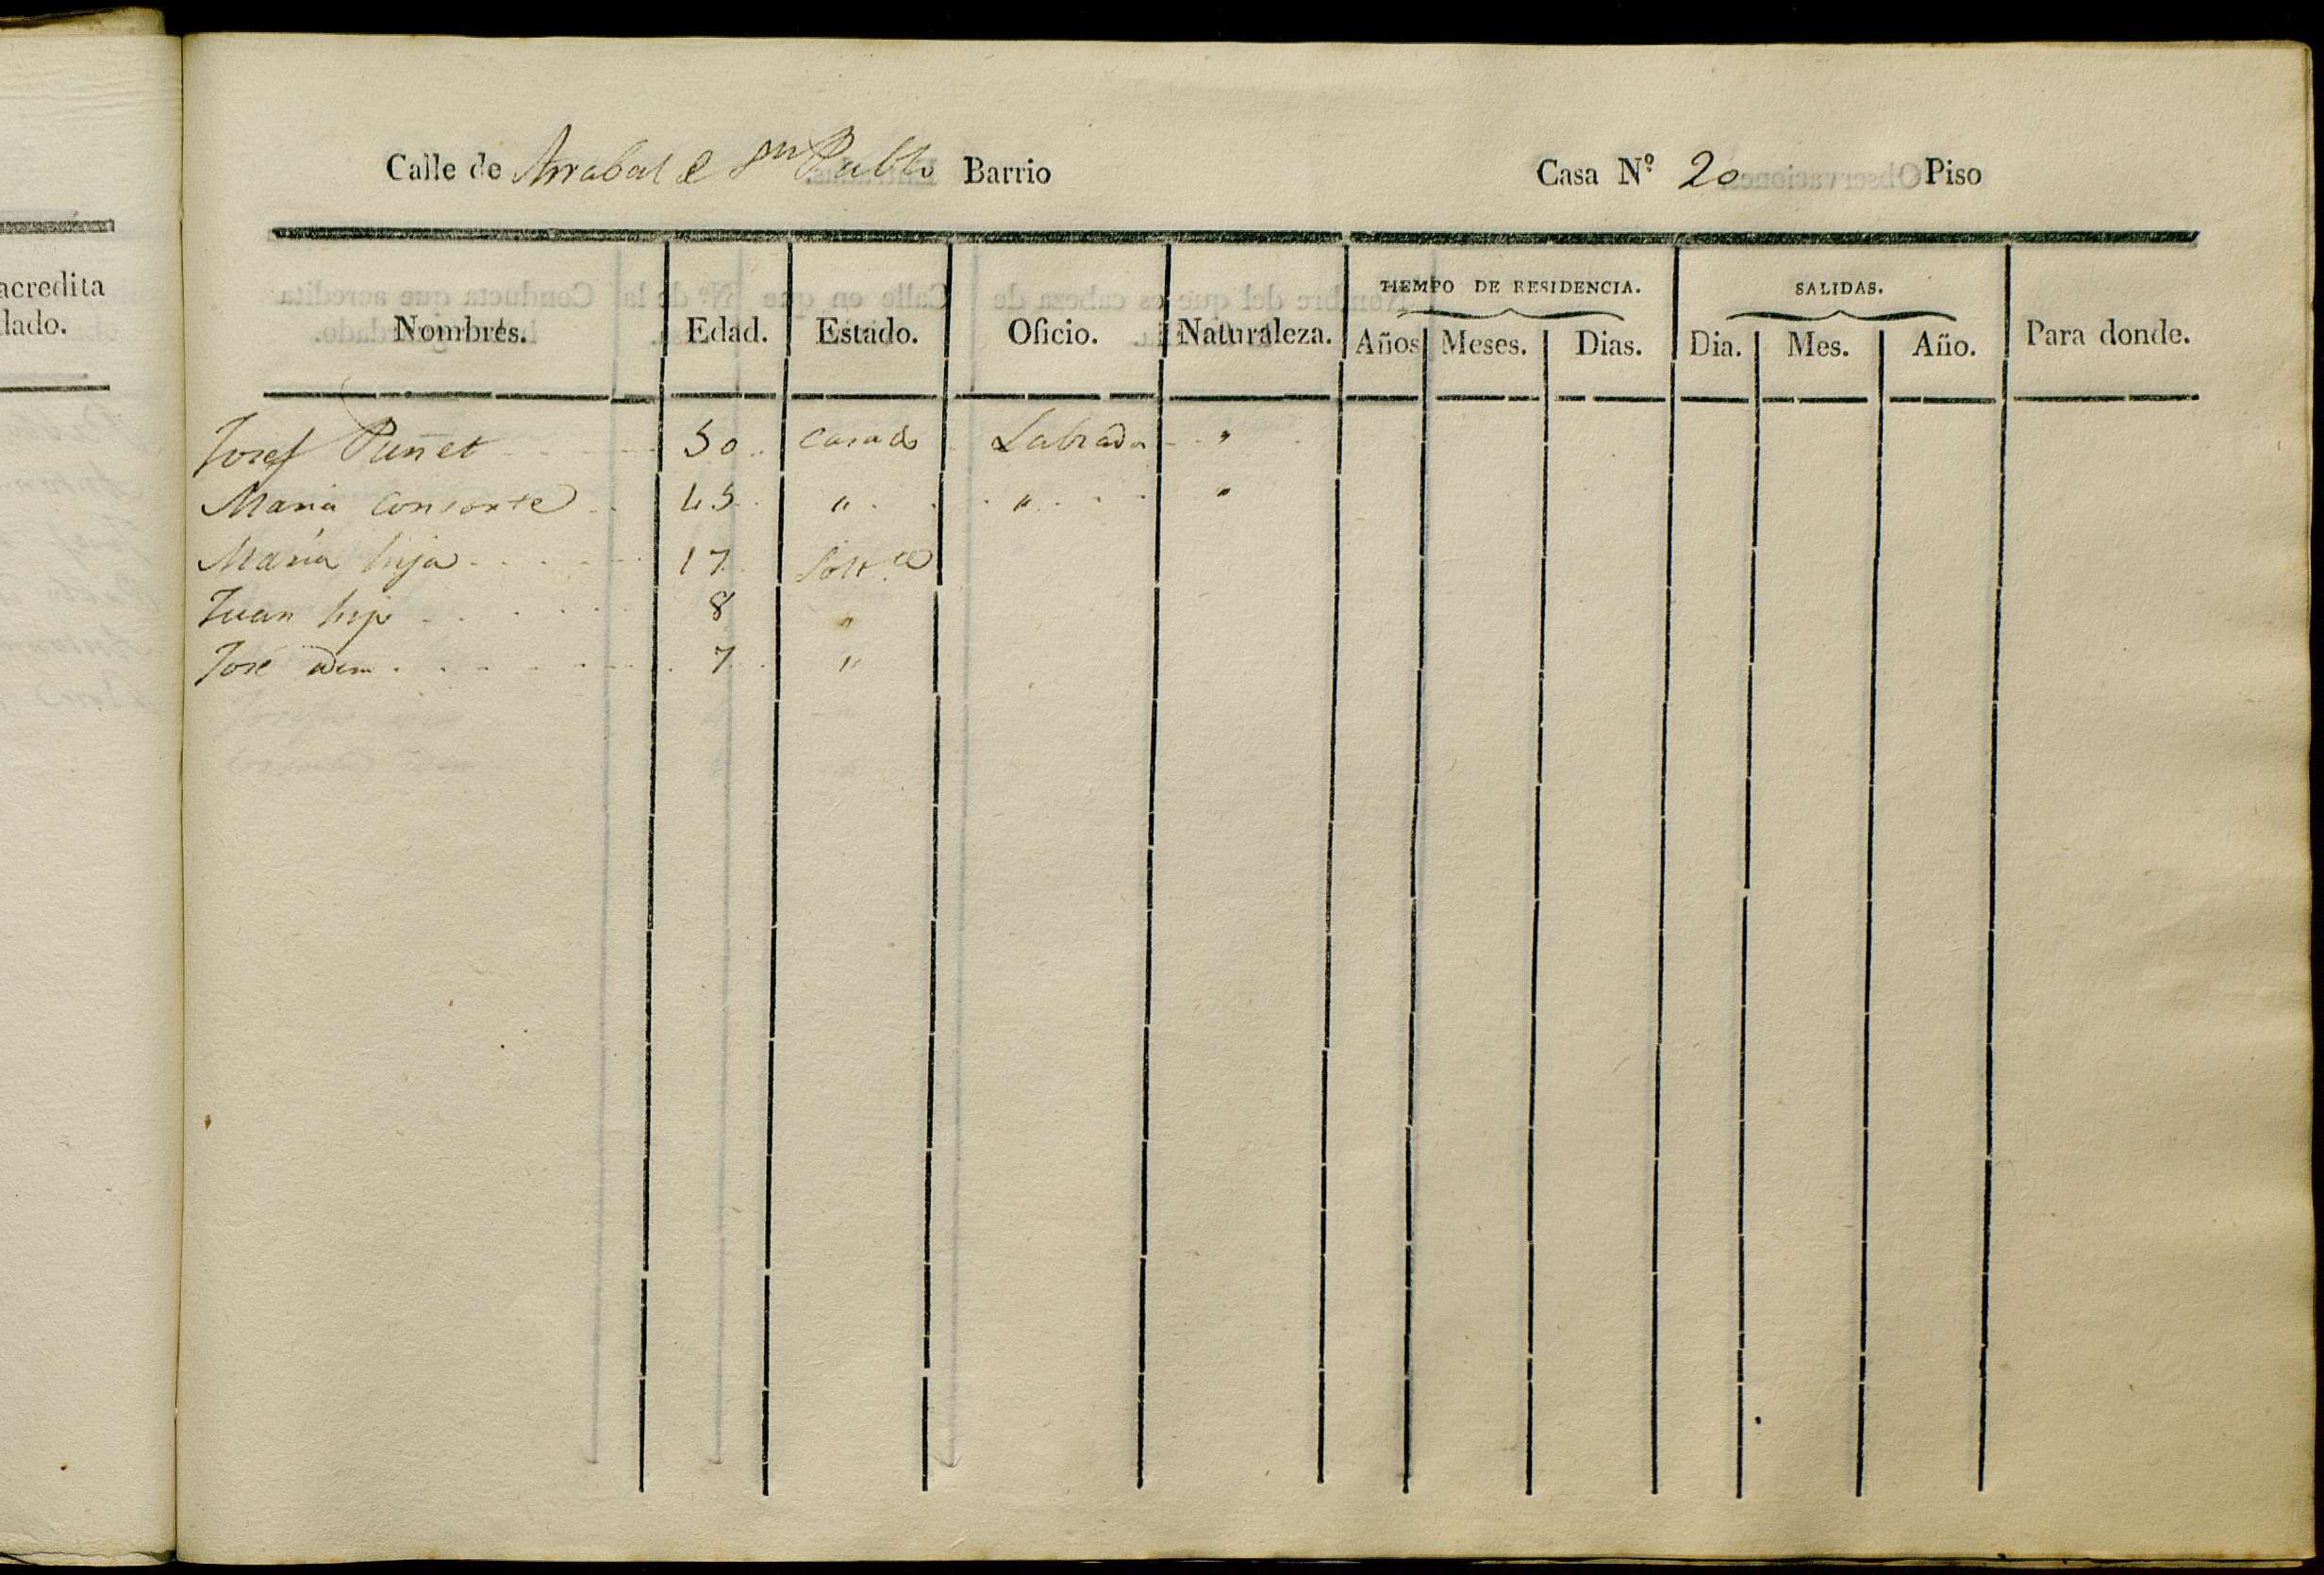 acredita
lado.
Calle de Arrabal de Sn Pablo Barrio Casa Nº 20 Piso
Nombres. Edad. Estado. Oficio. Naturaleza. TIEMPO DE RESIDENCIA. SALIDAS. Para donde.
Años Meses. Dias. Dia. Mes. Año.
Josef Puñet 50 casado Labrador "
Maria consorte 45 " " "
Maria hija 17 Solta
Juan hijo 8 "
José idem 7 "